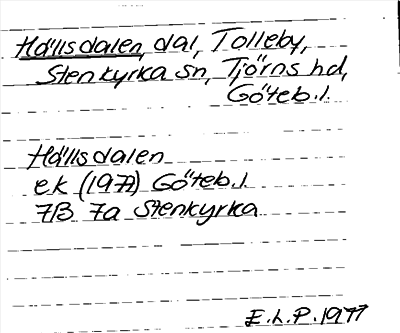 Hällsdalen, dal, Tolleby,
Stenkyrka sn, Tjörns hd,
Göteb.l.
Hällsdalen
ek (1977) Göteb.l.
7B 7a Stenkyrka
E.L.P. 1977